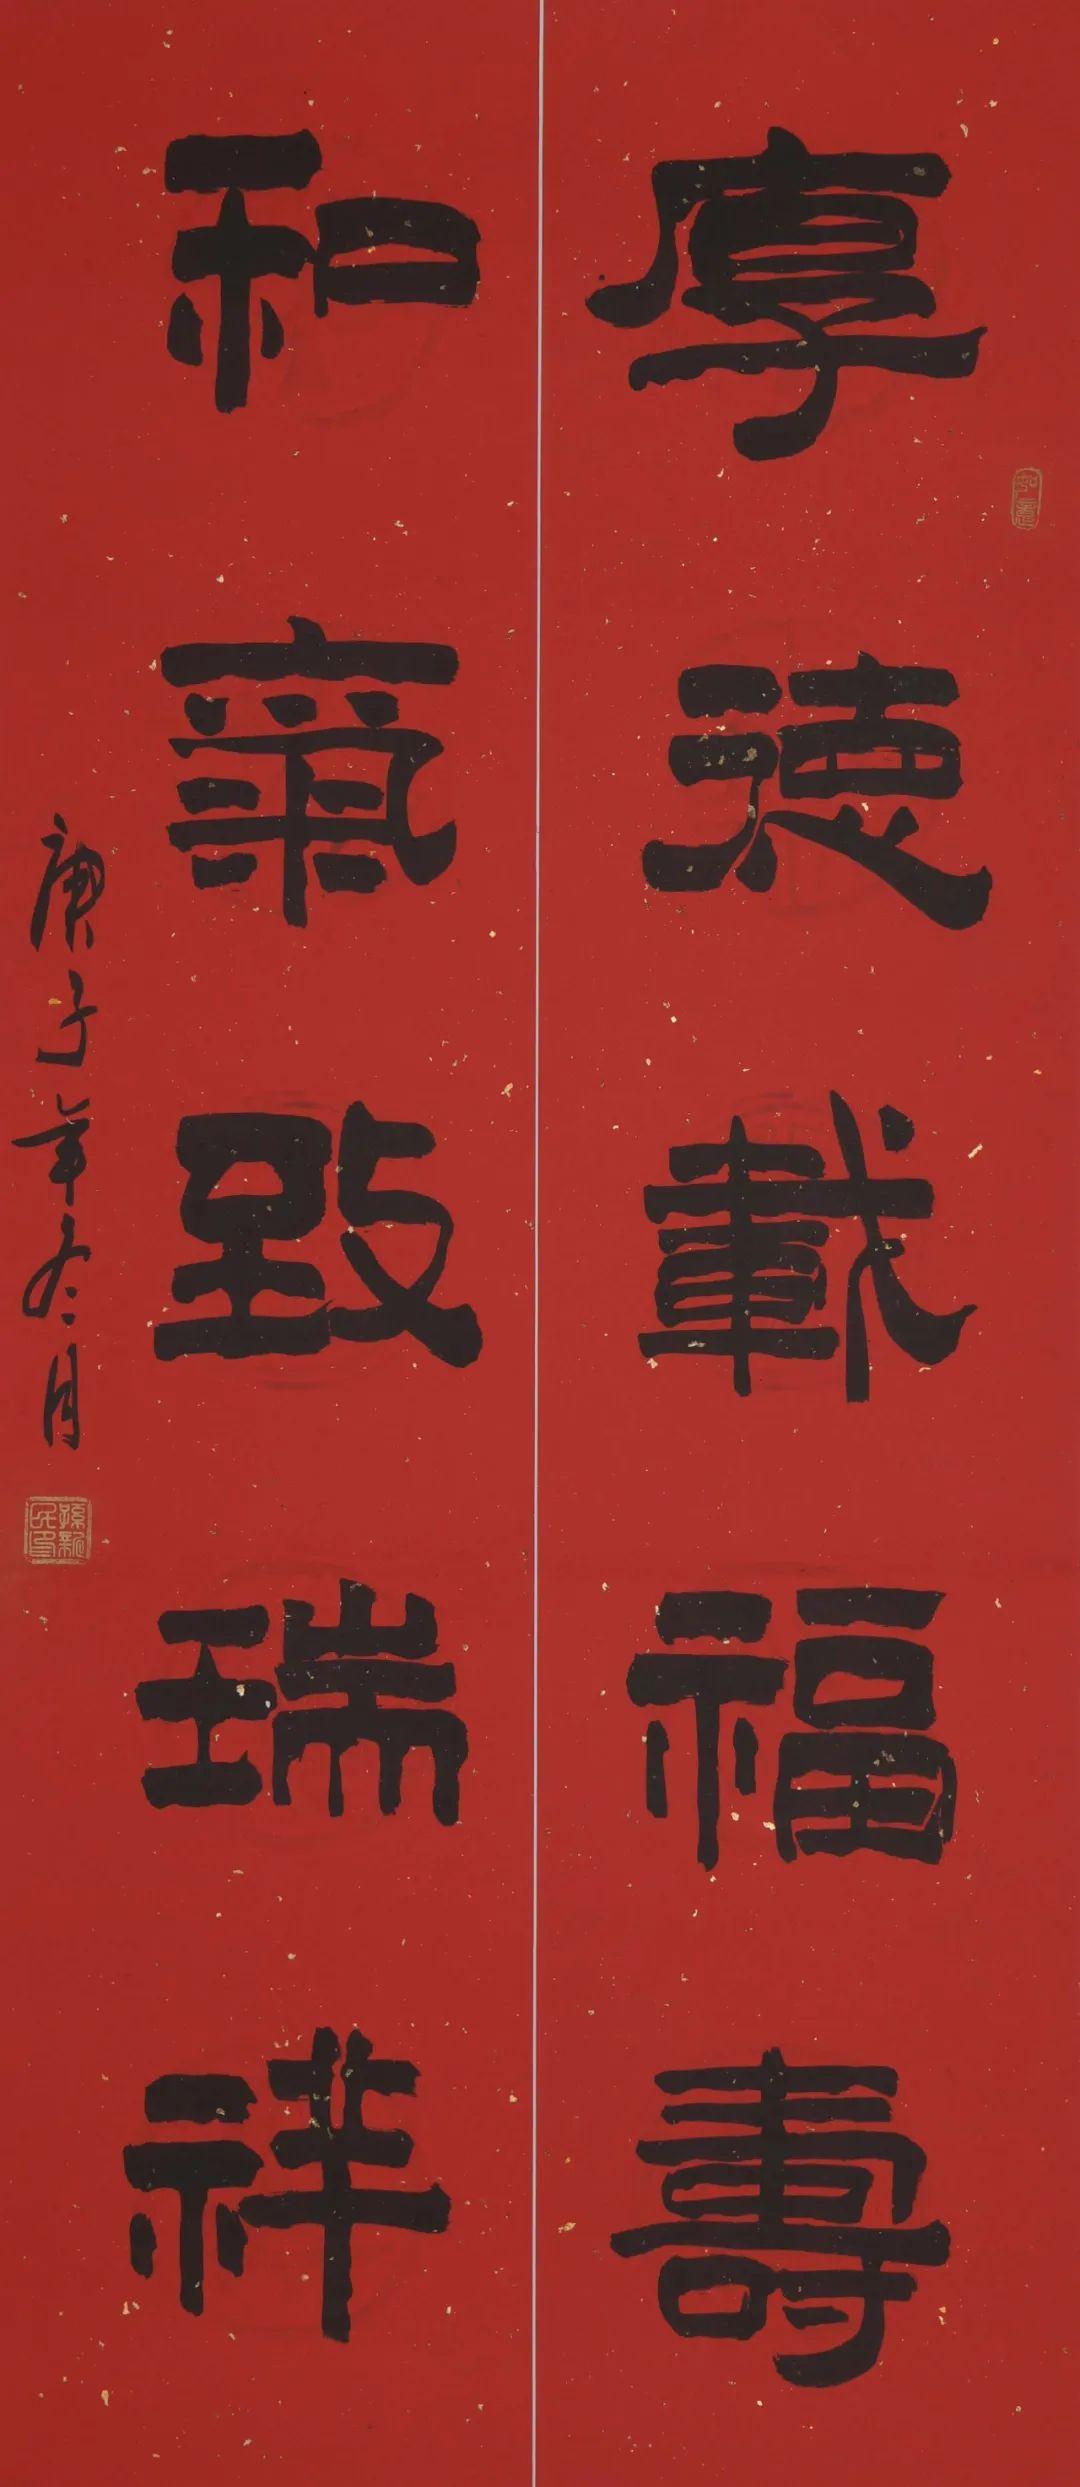 厚德載福壽
和氣致瑞祥
庚子年冬月